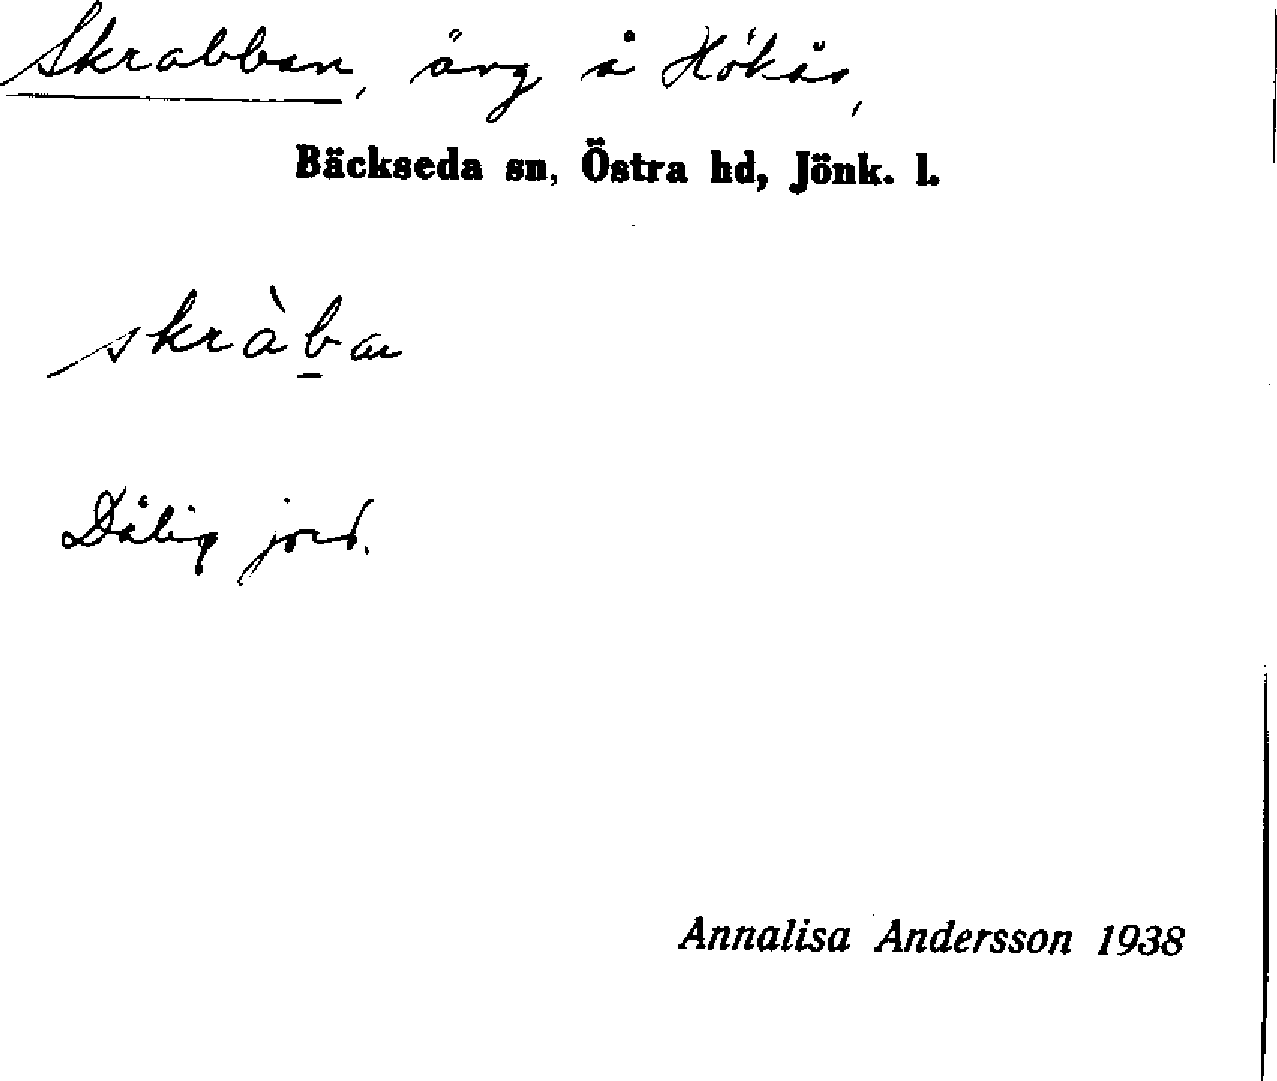 Skrabban, äng å Hökås,
Bäckseda sn, Östra hd, Jönk. l.
skràb̲an
Dålig jord.
Annalisa Andersson 1938